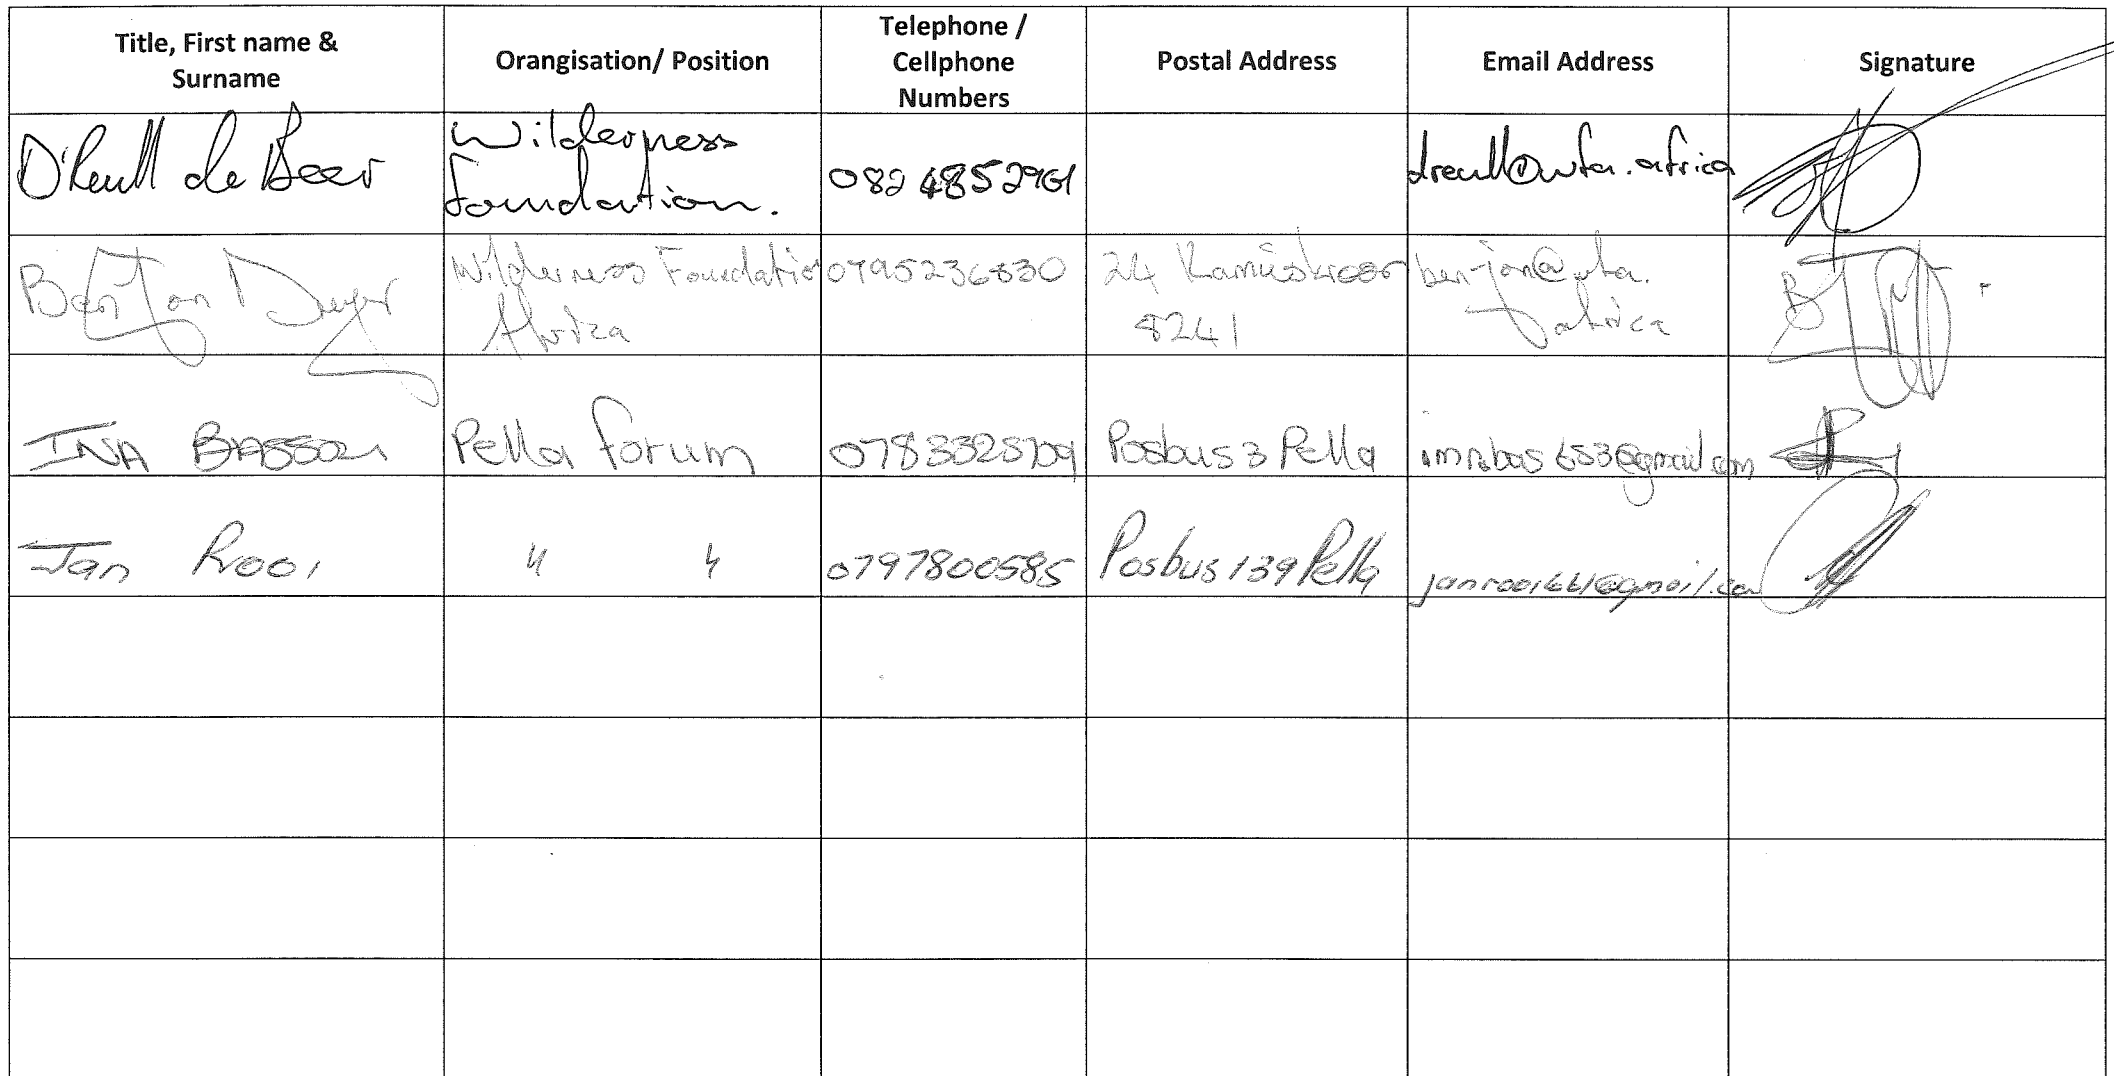 Title, First name & Surname	Orangisation/ Position	Telephone / Cellphone Numbers	Postal Address	Email Address	Signature
D'Reull de Beer	Wilderness Foundation.	082 485 2961		dreull@wfa.africa
Ben-Jon	Wilderness Foundation Africa	0795236830	24 Kamieskroon 8241	ben-jon@wfa.africa
INA BASSON	Pella forum	0783325709	Posbus 3 Pella	imnbas653@gmail.com
Jan Rooi	" "	0797800585	Posbus 139 Pella	janrooi661@gmail.com